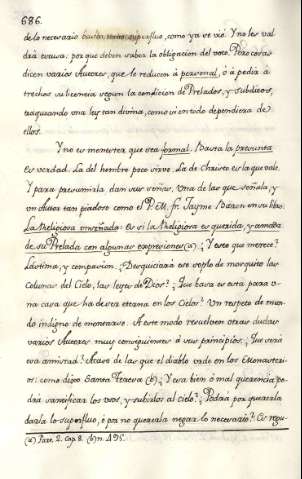 686.
de lo necesario hasta, como ya se vió. Y no les val
drá escusa, por que deben saber la obligacion del voto. Otra cosa
dicen varios Autores, que le reducen à personal, ò à pedir à
trechos su licencia segun la condicion de Prelados, y Subditos,
trasquando una ley tan divina, como si en todo dependiera de
ellos.
Y no es menester que sea formal. Basta la presunta
es verdad. La del hombre poco sirve. La de Christo es la que vale.
Y para presumirla dan sus señas. Una de las que señala, y
un Autor tan piadoso como el P. M. fr. Jayme Baron en su libro
La Religiosa enseñada: es si la Religiosa es querida, y amada
de su Prelada con algunas expresiones (a). ¿Y ese que merece?
Lastima, y compasion. ¿Desquiciará ese soplo de mosquito las
colunas del Cielo, las leyes de Dios? ¿Que basa es esta para u-
na casa que ha de ser eterna en los Cielos? Un respeto de mun
do indigno de mentarse. A este modo resuelven otras dudas
varios Autores muy consiguientes à sus principios. ¿Que será
esa amistad? Acaso de las que el diablo urde en los Monasteri-
os: como dijo Santa Teresa (b). ¿Y sea bien ò mal querencia po-
drá santificar los usos, y subirlos al cielo? ¿Podrá por quererla
darla lo superfluo, ò por no quererla negar lo necesario? Es regu-
(a) Part. 2. Cap. 8. (b) n. 495.